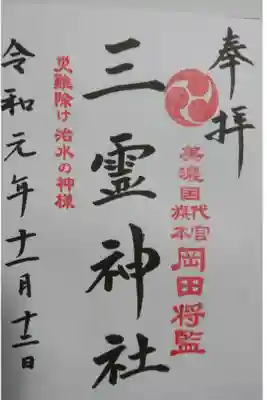 奉拝
美濃国
旗本代官
岡田将監
三霊神社
災難除け 治水の神様
令和元年十一月十二日